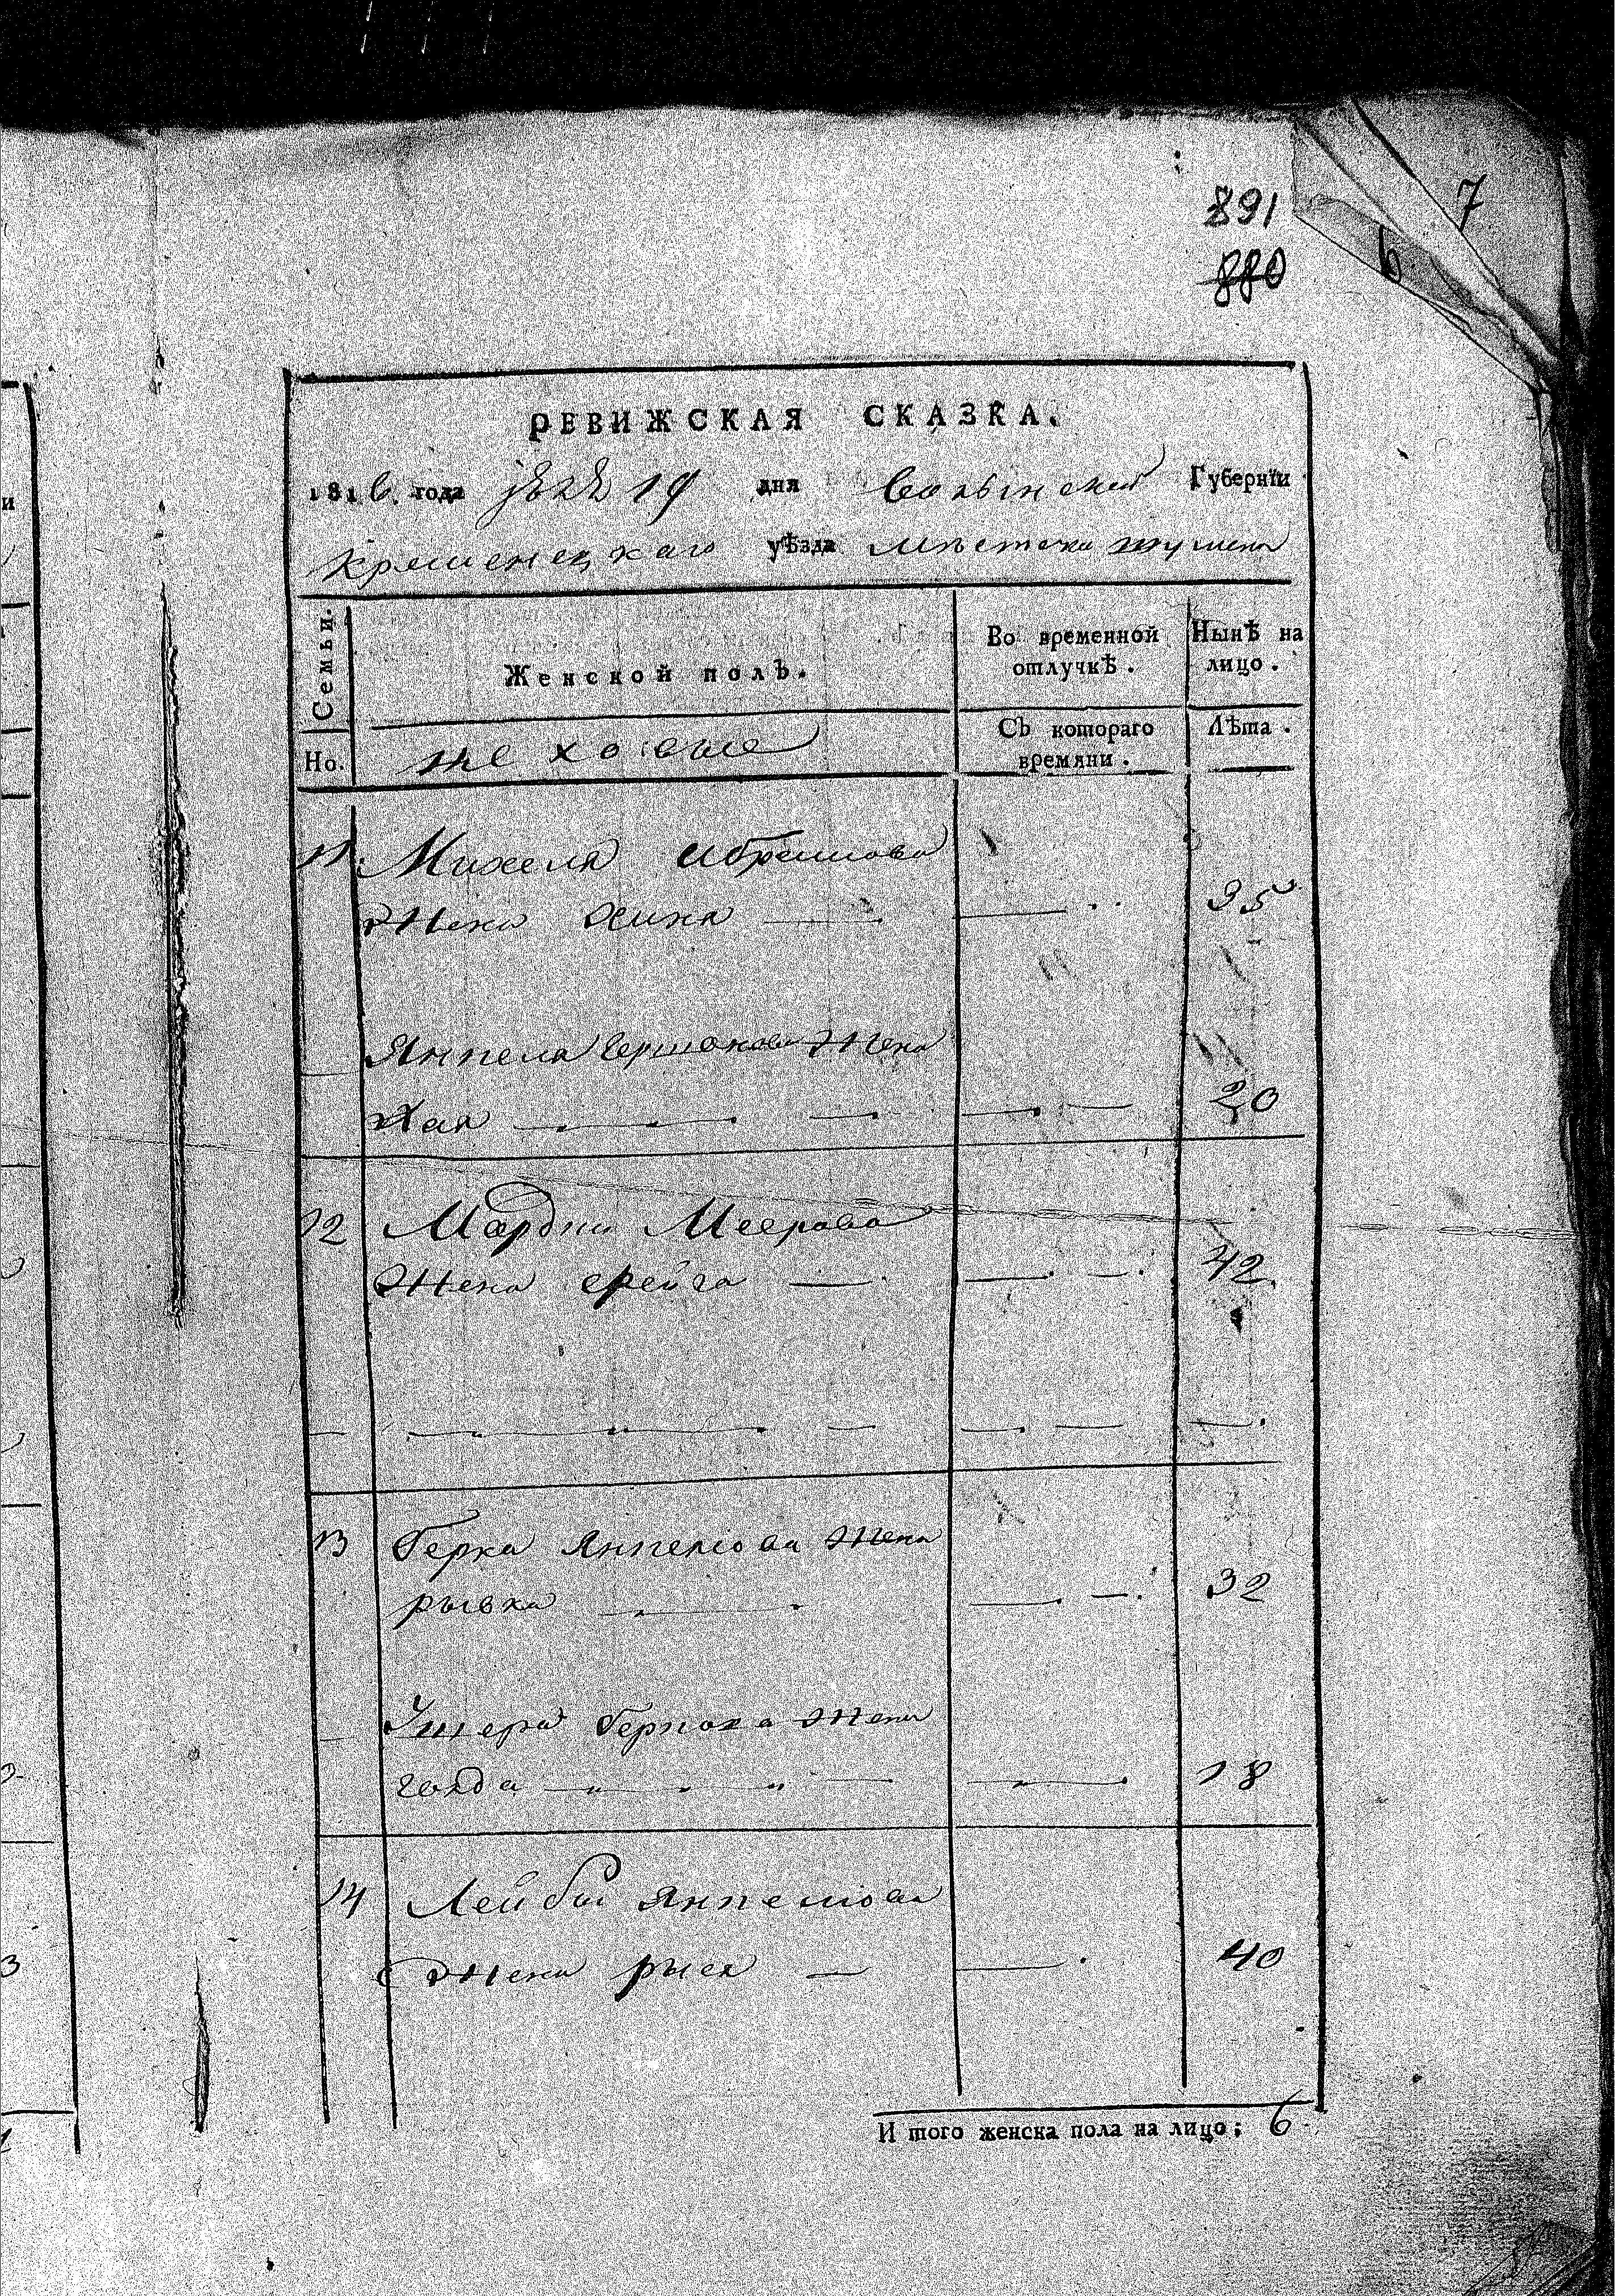 891
880
7
6
РЕВИЖСКАЯ СКАЗКА.
1816. года 19 дня Волынской Губернїи
Кременецкаго уѣзда местечка
Семьи.
Женской полъ.
Во временной отлучкѣ.
Нынѣ на лицо.
Но.
Съ котораго времяни.
Лѣта.
11. Михеля
Жена Хина — — 35
Янпеля Жена
Хая — — 20
12 Мардки Меерова
Жена фейга — — 42
13 Берка Янпелова Жена
рывка — — 32
Умера Беркова Жена
голда — — 18
14 Лейбы Янпелова
Жена рыся — — 40
И того женска пола на лицо; 6